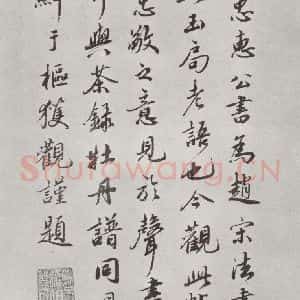 忠惠公書為趙宋法書
玉局老語也今觀此
忠敬之意見於聲畫
與茶錄牡丹譜同
于樞獲觀謹題
Shufawang.CN